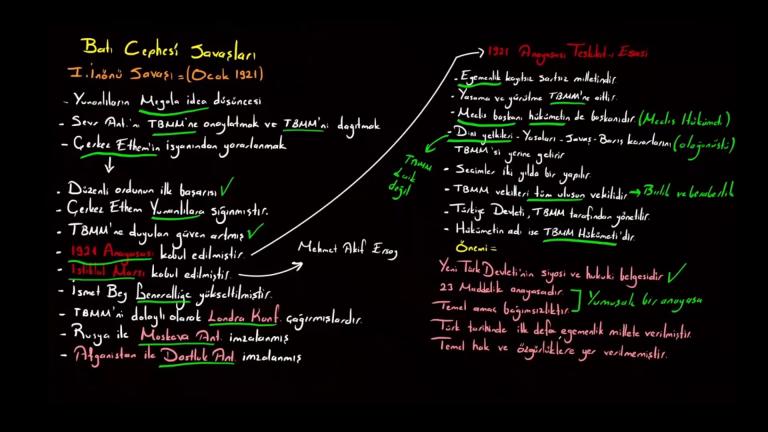 Batı Cephesi Savaşları
I. İnönü Savaşı = (Ocak 1921)
- Yunanlıların Megala idea düşüncesi
- Sevr Ant.'nı TBMM'ne onaylatmak ve TBMM'ni dağıtmak
- Çerkez Ethem'in isyanından yararlanmak
- Düzenli ordunun ilk başarısı ✓
- Çerkez Ethem Yunanlılara sığınmıştır.
- TBMM'ne duyulan güven artmış ✓
- 1921 Anayasası kabul edilmiştir.
- İstiklal Marşı kabul edilmiştir. → Mehmet Akif Ersoy
- İsmet Bey Generalliğe yükseltilmiştir.
- TBMM'ni dolaylı olarak Londra Konf. çağırmışlardır.
- Rusya ile Moskova Ant. imzalanmış
- Afganistan ile Dostluk Ant. imzalanmış
1921 Anayasası Teşkilat-ı Esasi
- Egemenlik kayıtsız şartsız milletindir.
- Yasama ve yürütme TBMM'ne aittir.
- Meclis başkanı hükümetin de başkanıdır. (Meclis Hükümeti)
- Dini yetkileri - Yasaları - Savaş - Barış kararlarını (olağanüstü)
TBMM'si yerine getirir
TBMM Laik değil
- Seçimler iki yılda bir yapılır.
- TBMM vekilleri tüm ulusun vekilidir → Birlik ve beraberlik
- Türkiye Devleti, TBMM tarafından yönetilir.
- Hükümetin adı ise TBMM Hükümeti'dir.
Önemi =
Yeni Türk Devleti'nin siyasi ve hukuki belgesidir ✓
23 Maddelik anayasadır.
Temel amaç bağımsızlıktır. ] Yumuşak bir anayasa
Türk tarihinde ilk defa egemenlik millete verilmiştir.
Temel hak ve özgürlüklere yer verilmemiştir.